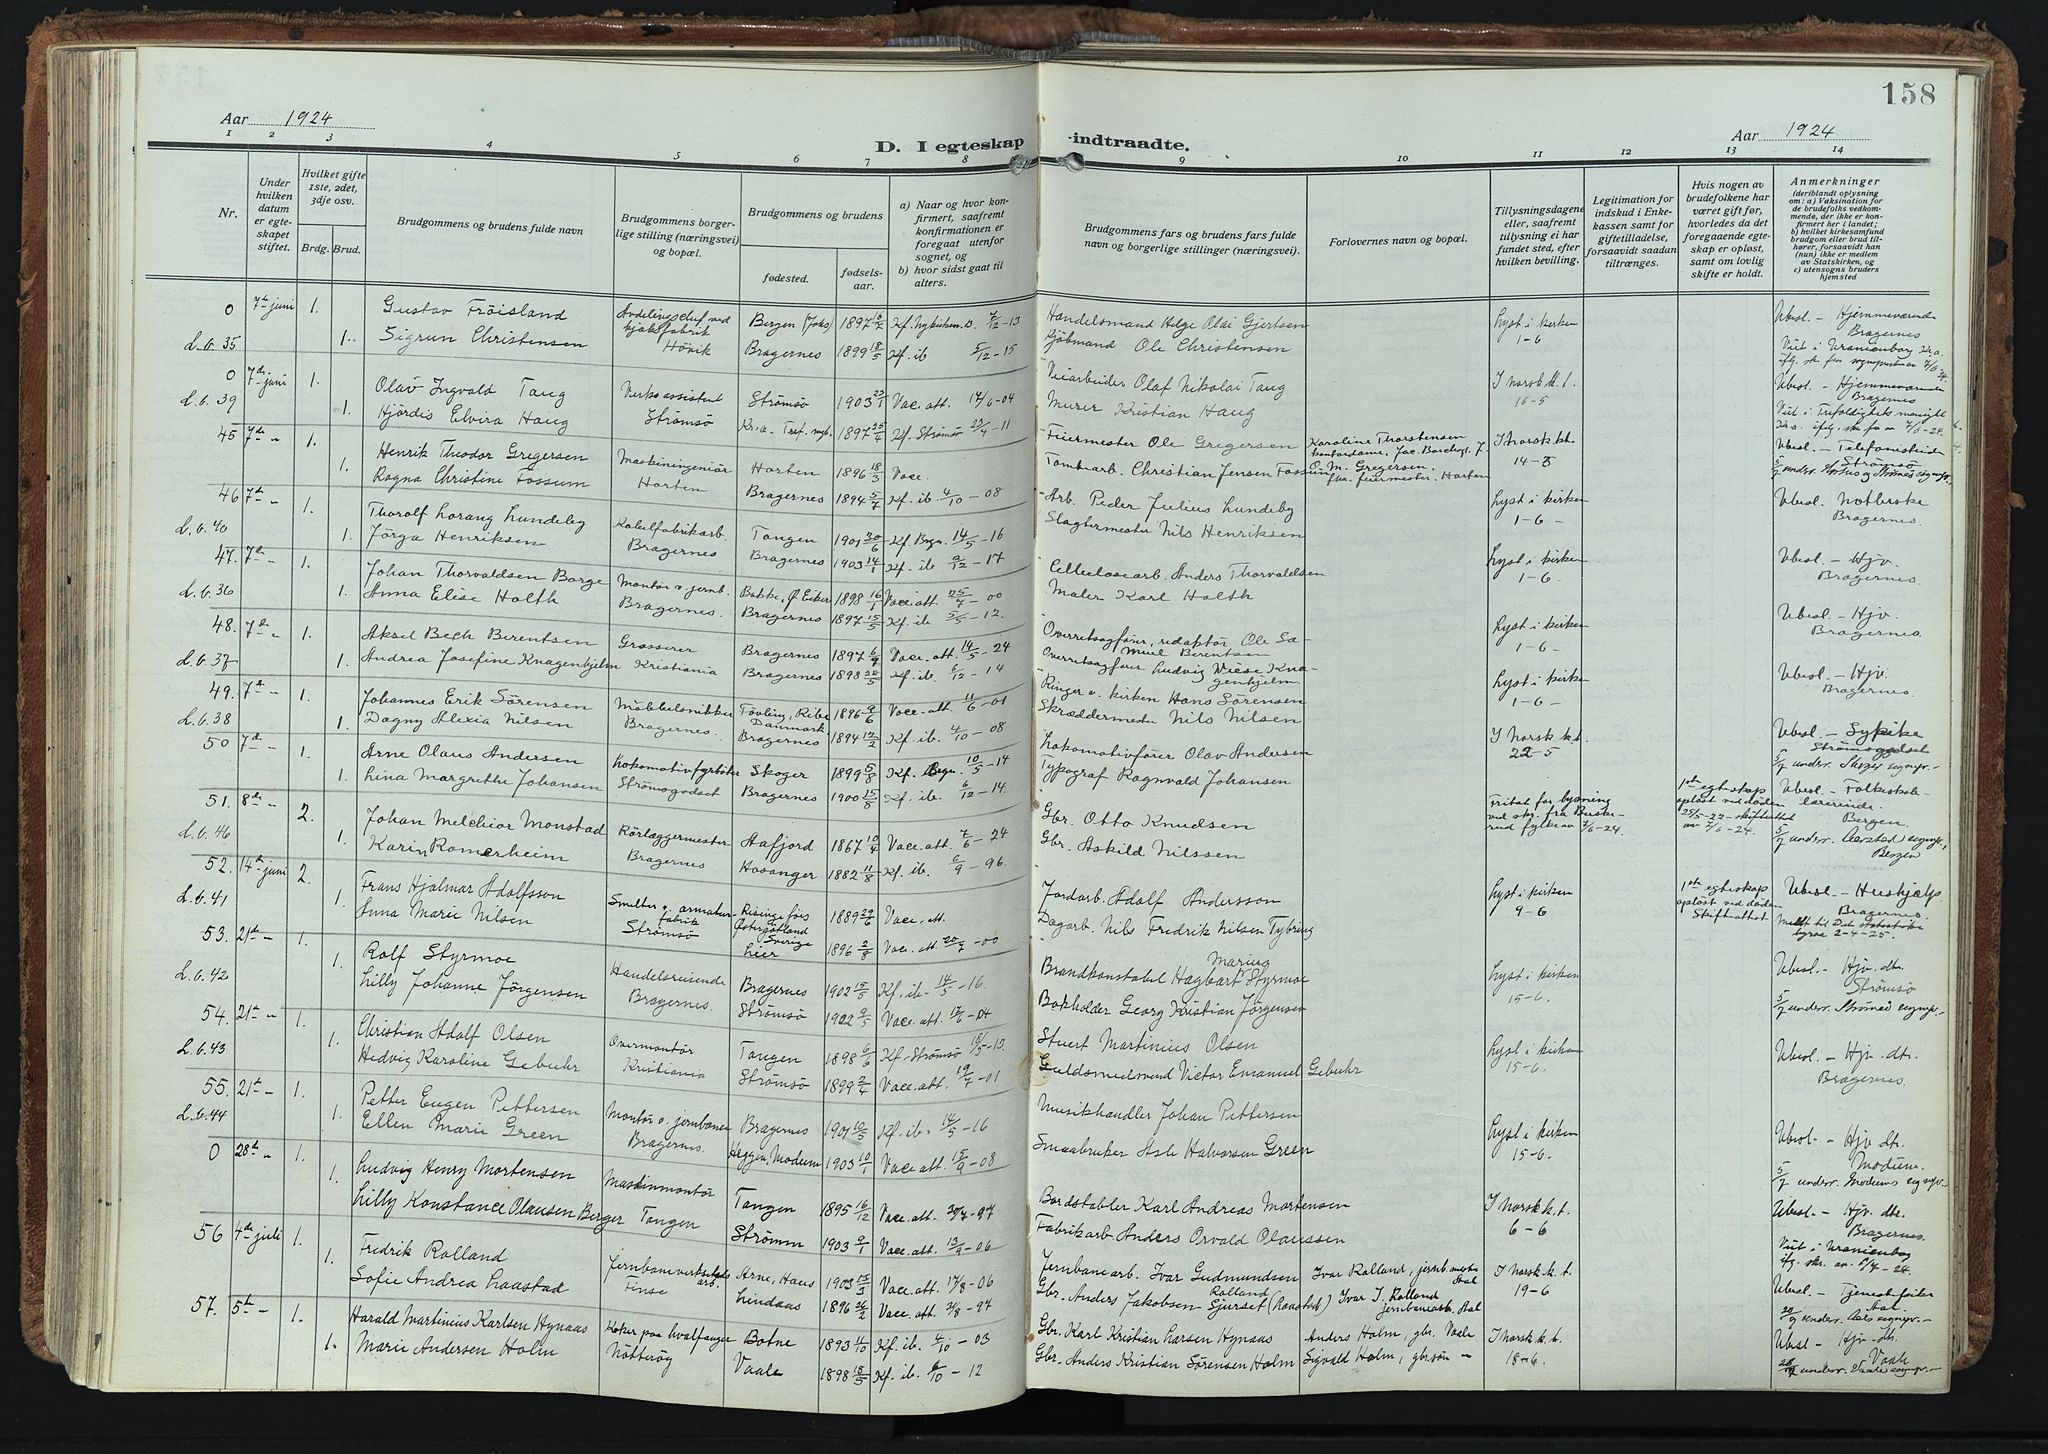 158
Aar 1924
Aar 1924
D. I egteskap indtraadte.
1 2 3 4 5 6 7 8 9 10 11 12 13 14
Nr.
Under hvilken datum er egteskapet stiftet.
Hvilket gifte 1ste, 2det, 3dje osv.
Brdg. Brud.
Brudgommens og brudens fulde navn
Brudgommens borgerlige stilling (næringsvei) og bopæl.
Brudgommens og brudens
fødested.
fødselsaar.
a) Naar og hvor konfirmert, saafremt konfirmationen er foregaat utenfor sognet, og
b) hvor sidst gaat til alters.
Brudgommens fars og brudens fars fulde navn og borgerlige stillinger (næringsvei).
Forlovernes navn og bopæl.
Tillysningsdagene eller, saafremt tillysning ei har fundet sted, efter hvilken bevilling.
Legitimation for indskud i Enkekassen samt for giftetilladelse, forsaavidt saadan tiltrænges.
Hvis nogen av brudefolkene har været gift før, hvorledes da det foregaaende egteskap er opløst, samt om lovlig skifte er holdt.
Anmerkninger
(deriblandt oplysning om: a) Vaksination for de brudefolks vedkommende, der ikke er konfirmert her i landet, b) hvilket kirkesamfund brudgom eller brud tilhører, forsaavidt han (hun) ikke er medlem av Statskirken, og c) utensogns bruders hjemsted
0 7de juni 1. Gustav Fröisland Bergen 1897 Handelsmand Helge Olai Gjertsen Lyst i kirken Ubesl. – Hjemmeværende
L.b. 35 1. Sigrun Christensen Hövik Bragernes 1899 18/5 Kf. ib 5/12–15 Kjöbmand Ole Christensen 1–6 Bragernes
0 7de juni 1. Olav Ingvald Taug Verksassistent Strömsö 1903 Vac. att. 14/6–04 Veiarbeider Olaf Nikolai Taug I norsk k.t. Ubesl. – Hjemmeværende
L.b. 39 1. Hjördis Elvira Haug Strömsö 1897 25/4 Kf. Strömsö 23/4–11 Murer Kristian Haug 16–5 Bragernes
45 7de – 1. Henrik Theodor Gregersen Maskiningeniör Horten 1896 18/3 Vacc. Feiermester Ole Gregersen Karoline Thorstensen I Norsk k.t. Ubesl. – Telefonistinde
1. Ragna Christine Fossum Horten Bragernes 1894 5/7 Kf. ib. 4/10–08 Tomtearb. Christian Jensen Fossum feiermester. Horten 14–5 Strömsö
46 7de – 1. Thorolf Lorang Lundeby Kabelfabrikarb. Tangen 1901 30/6 Kf. Brgn. 14/5–16 Arb. Peder Julius Lundeby Lyst i kirken Ubesl.
L.b. 40 1. Jörga Henriksen Bragernes Bragernes 1903 14/1 Kf. ib 9/12–17 Slagtermester Nils Henriksen 1–6 – Bragernes
47. 7de – 1. Johan Thorvaldsen Borge Montör v. jernb. Bakke, Ø. Eiker 1898 16/1 Vacc. att. 25/7–00 Cellulosearb. Anders Thorvaldsen Lyst i kirken Ubesl. – Hjv.
L.b. 36 1. Anna Elise Holth Bragernes. Bragernes 1897 15/5 Kf. ib 5/5–12. Maler Karl Holth 1–6. Bragernes.
48. 7de – 1. Aksel Bech Berentsen Grosserer Bragernes 1897 6/9 Vacc. att. 14/5–24 Overretssagförer, redaktör Ole Samuel Berentsen Lyst i kirken Ubesl. – Hjv.
L.b. 37 1. Andrea Josefine Knagenhjelm Kristiania Bragernes 1898 28/5 Kf. ib. 6/12–14 Overretssagförer Ludvig Wiese Knagenhjelm 1–6 – Bragernes.
49. 7de – 1. Johannes Erik Sörensen Möbbelsnikker Tövling, Ribe Danmark 1896 9/6 Vacc. att. 11/6–01 Ringer v. kirken Hans Sörensen Lyst i kirken Ubesl. – Hjv.
L.b. 38 1. Dagny Alexia Nilsen Bragernes. Bragernes 1894 12/2 Kf. ib. 4/10–08 Skræddermester Nils Nilsen 1–6 – Bragernes.
50 7de – 1. Arne Olaus Andersen Lokomotivfyrböter Skoger 1899 5/8 Kf. Brgn. 10/5–14 Lokomotivförer Olav Andersen I Norsk k.t. Ubesl. – Sypike
1. Lina Margrethe Johansen Strömsgodset Bragernes 1900 15/8 Kf. ib. 6/12–14. Typograf Ragnvald Johansen 22–5 Strömsgodset
51. 8de – 2. Johan Melchior Monstad Rörlæggermester Aafjord 1867 10/4 Vacc. att. 7/6–24 Gbr. Otto Knudsen Fritat for lysning ved skr. fra Buskerud fylke av 7/6–24. 1ste egteskap oplöst ved döden 25/5–22 – skiftattest av 7/6–24. Ubesl. – Folkeskolelærerinde. Bergen
L.b. 46 1. Karin Romerheim Bragernes Hosanger 1882 11/8 Kf. ib. 6/9–96. Gbr. Askild Nilssen
52. 14de juni 2. Frans Hjalmar Adolfsson Smelter v. armaturfabrik Risinge förs Östergötland Sverige 1889 29/6 Vacc. att. Jordarb. Adolf Andersson Lyst i kirken 1ste egteskap oplöst ved döden Skiftattest Ubesl. – Hushjelp
L.b. 41 1. Anna Marie Nilsen Strömsö Lier 1896 2/8 Vac. att. 20/7–00 Dagarb. Nils Fredrik Nilsen Tybring 9–6 Bragernes. Meldt til Det statistiske byraa 2–4–25.
53. 21de – 1. Rolf Styrmoe Handelsreisende Bragernes 1902 15/5 Kf. ib. 14/5–16. Brandkonstabel Hagbart Marius Styrmoe Lyst i kirken Ubesl. – Hjv. dtr.
L.b. 42 1. Lilly Johanne Jörgensen Bragernes. Strömsö 1922 9/5 Vacc. att. 17/6–04 Bokholder Georg Kristian Jörgensen 15–6. Strömsö
54. 21de – 1. Christian Adolf Olsen Overmontör Tangen 1898 6/6 Kf. Strömsö Stuert Martinius Olsen Lyst i kirken Ubesl. – Hjv. dtr.
L.b. 43 1. Hedvig Karoline Gebuhr Kristiania Strömsö 1899 2/4 Vacc. att. 19/7–01 Guldsmedsvend Victor Emanuel Gebuhr 15–6. Bragernes.
55. 21de – 1. Petter Eugen Pettersen Montör v. jernbanen Bragernes 1901 Kf. ib. 14/5–16 Musikhandler Johan Pettersen Lyst i kirken Ubesl. – Hjv. dtr.
L.b. 44 1. Ellen Marie Green Bragernes. Heggen, Modum 1903 10/1 Vacc. att. 15/9–08 Smaabruker Asle Halvorsen Green 15–6. Modum.
0 28de – 1. Ludvig Henry Mortensen Maskinmontör Tangen 1895 16/12 Vacc. att. 20/7–97 Bordstabler Karl Andreas Mortensen I Norsk k.t. Ubesl. – Hjv. dtr.
1. Lilly Konstance Olausen Berger Tangen Strömm 1903 9/1 Vacc. att. 13/9–06 Fabrikarb. Anders Orvald Olaussen 6–6 Bragernes.
56 4de juli 1. Fredrik Rolland Jernbaneverkstedsarb. Arne, Haus 1903 Vacc. att. 17/8–06 Jernbanearb. Ivar Gudmundsen Rolland Ivar Rolland, I Norsk k.t. Ubesl. – Tjenestepike
1. Sofie Andrea Laastad Finse Lindaas 1896 26/2 Vacc. att. Gbr. Anders Jakobsen Sjurset Ivar I. Rolland jernbanearb. Aal 19–6 Aal.
57. 5te – 1. Harald Martinius Karlsen Hynaas Koker paa hvalfanger Botne 1893 4/10 Kf. ib. 4/10–03 Gbr. Karl Kristian Larsen Hynaas Anders Holm, gbr. Vaale I Norsk k.t. Ubesl. – Hjv. dtr.
1. Marie Andersen Holm Nötteröy Vaale 1898 18/5 Kf. ib. 6/10–12 Gbr. Anders Kristian Sörensen Holm Sigvald Holm, gbr.sön – 18–6. Vaale